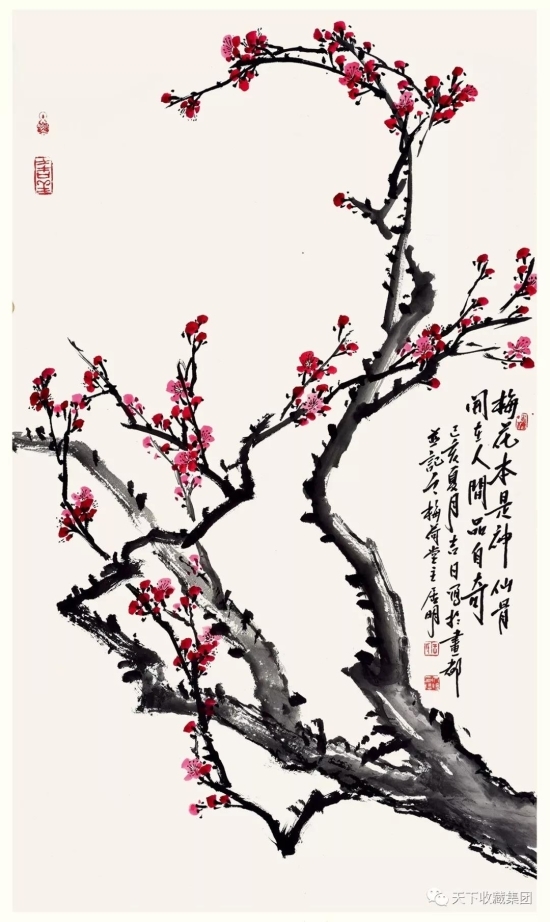 梅花本是神仙骨
開在人間品自奇
己亥夏月吉日寫於畫都
並記之梅荷堂主居明
天下收藏集团